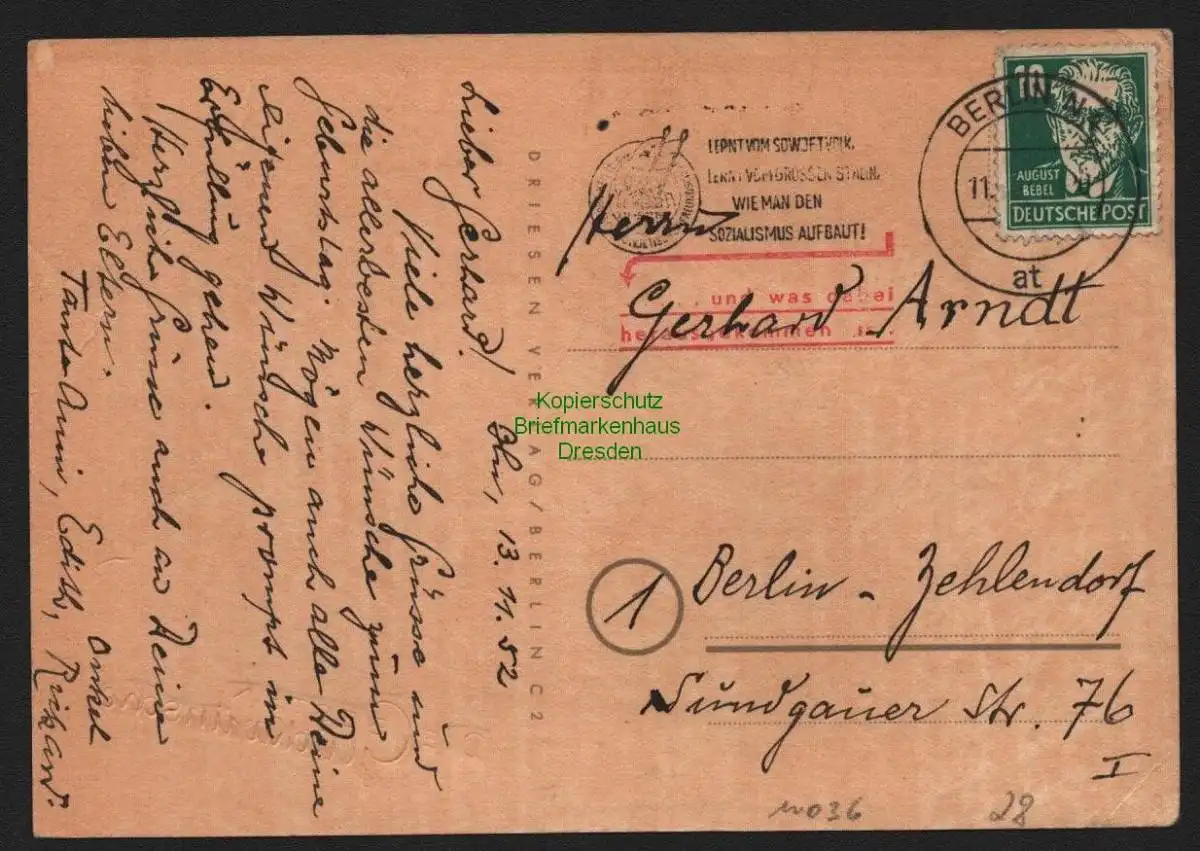 Bln, 13. 11. 52
Lieber Gerhard!
Viele herzliche Grüsse und
die allerbesten Wünsche zum
Geburtstag. Mögen auch alle Deine
eigenen Wünsche prompt in
Erfüllung gehen.
Herzliche Grüsse auch an Deine
lieben Eltern.
Onkel
Tante Anni, Edith, Richard.
DRIESEN VERLAG/BERLIN C 2
LERNT VOM SOWJETVOLK,
LERNT VOM GROSSEN STALIN,
WIE MAN DEN
SOZIALISMUS AUFBAUT!
... und was dabei
herausgekommen ist.
BERLIN N
11.
at
10
AUGUST
BEBEL
DEUTSCHE POST
Herrn
Gerhard Arndt
Kopierschutz
Briefmarkenhaus
Dresden
1
Berlin - Zehlendorf
Sundgauer Str. 76
I
036
28